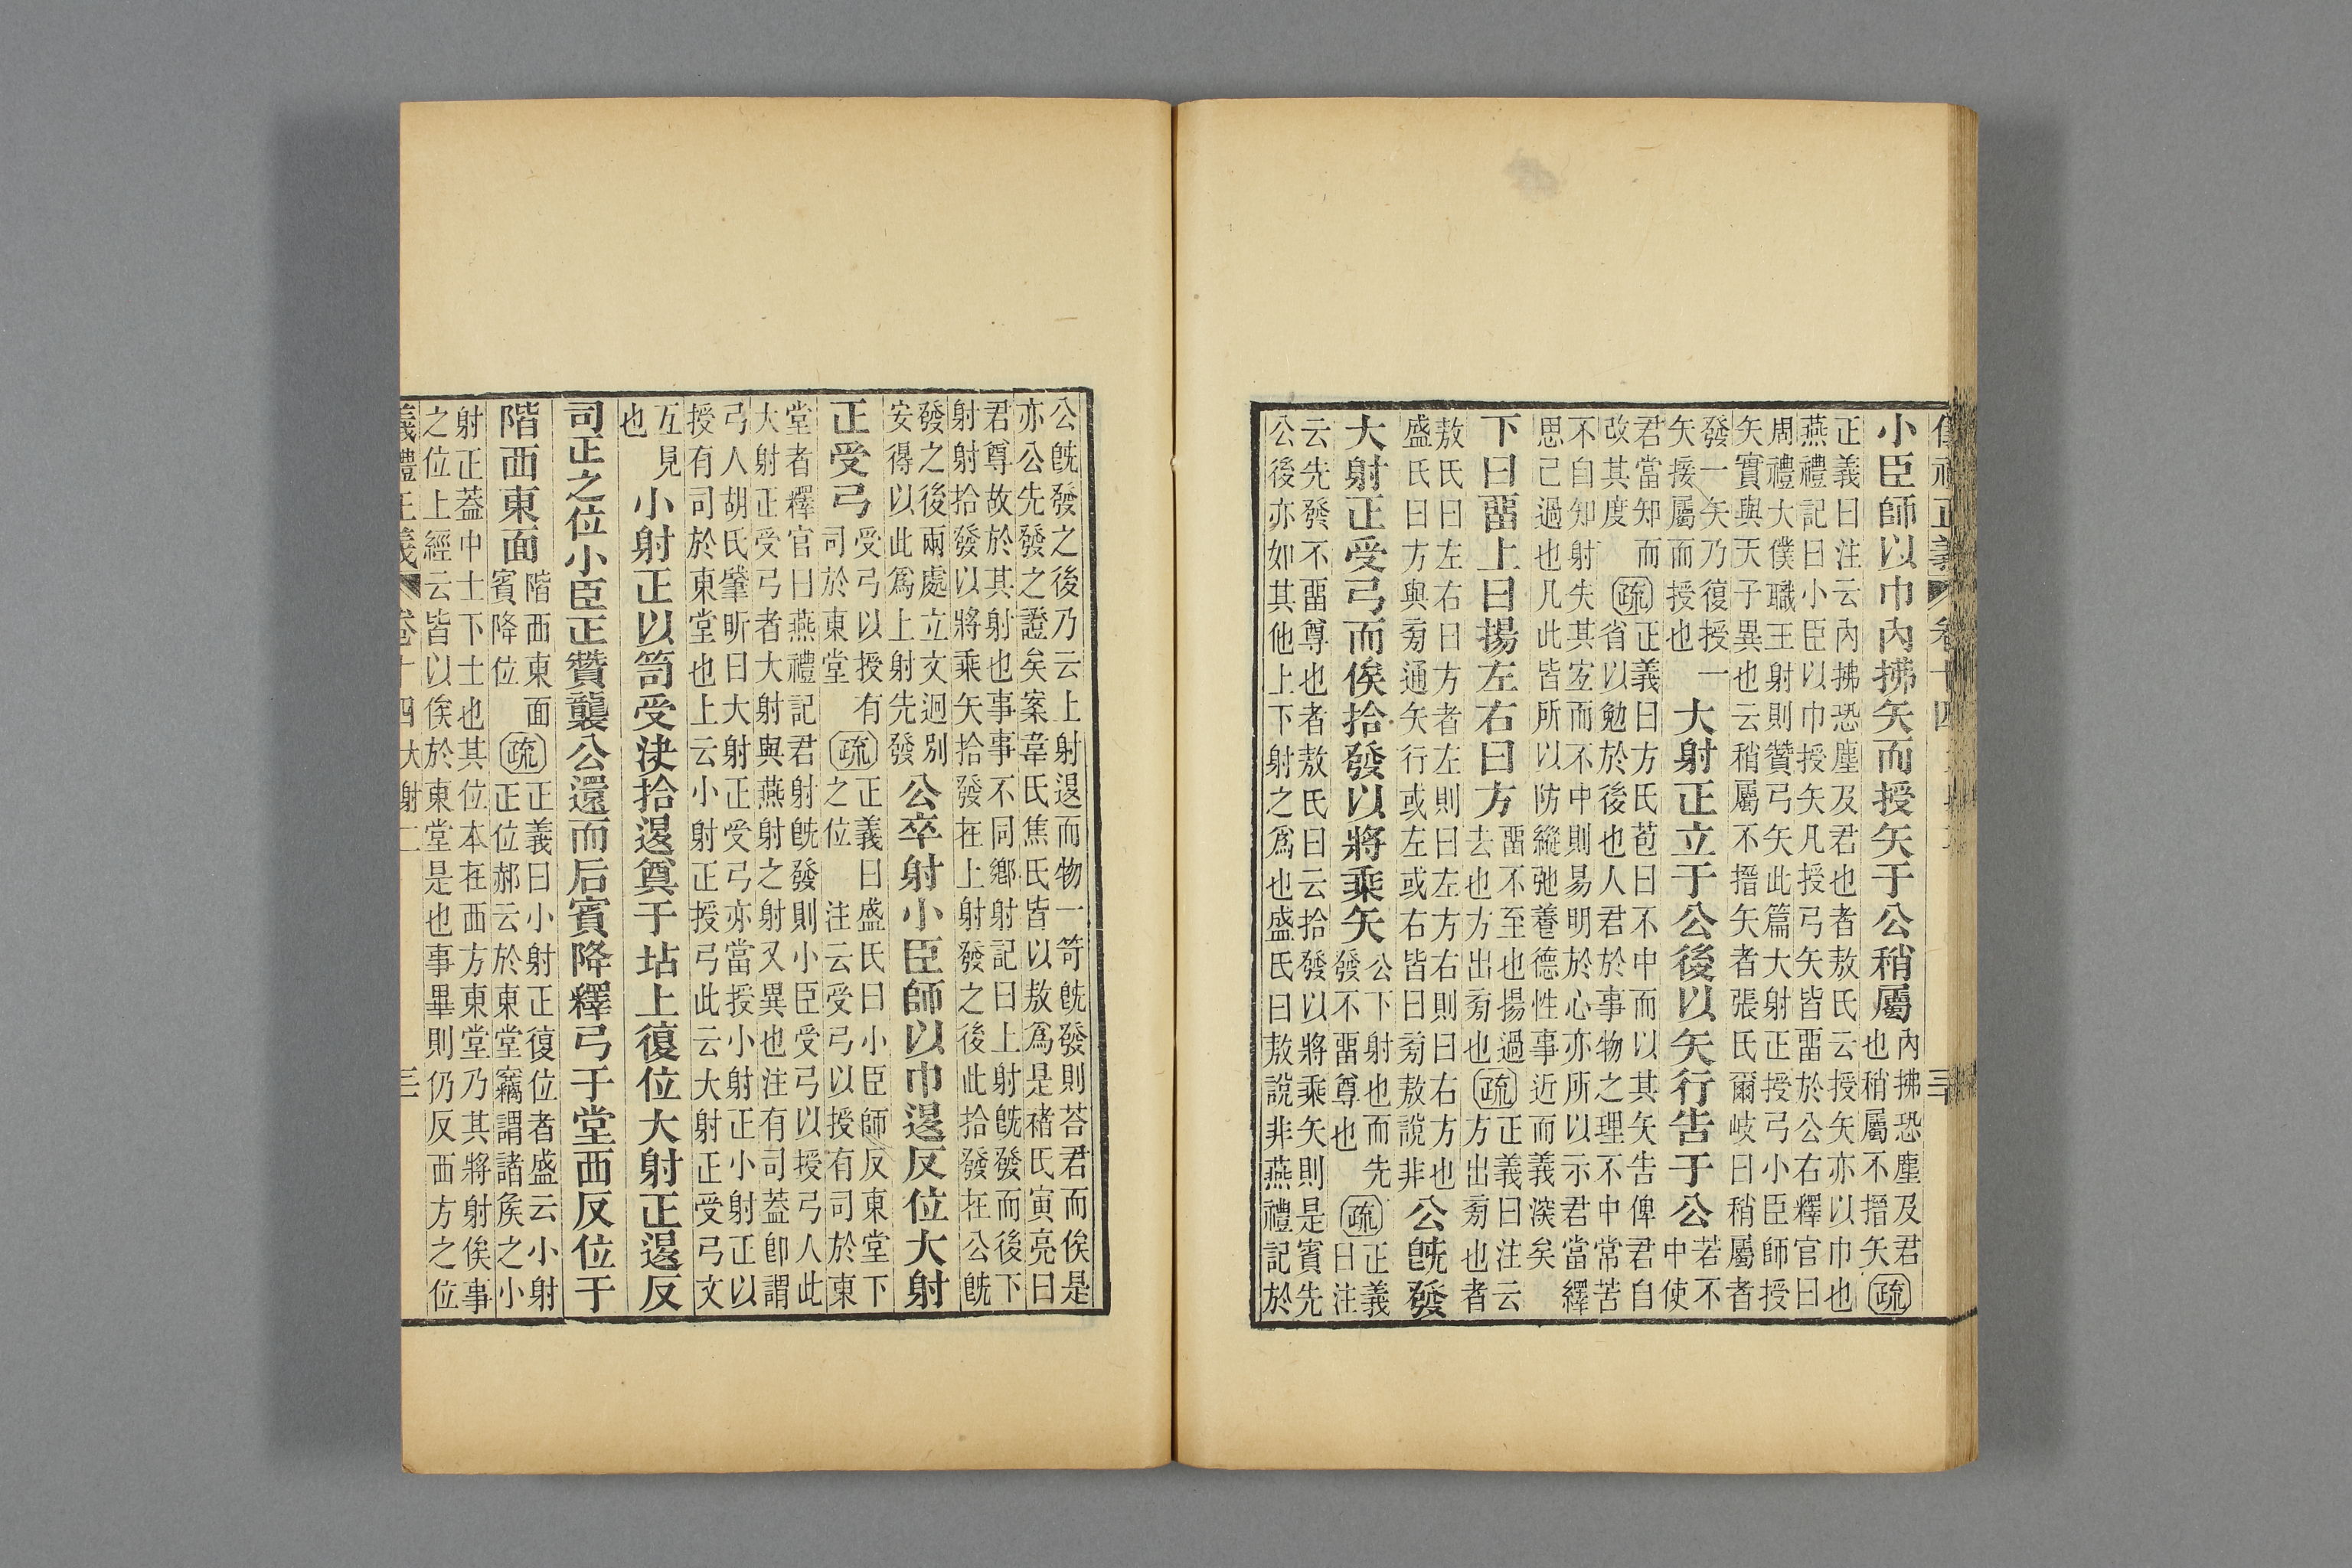 儀禮正義 卷十四 三十
小臣師以巾內拂矢而授矢于公稍屬
內拂恐塵及君
也稍屬不搢矢
疏
正義曰注云內拂恐塵及君也者敖氏云授矢亦以巾也
燕禮記曰小臣以巾授矢凡授弓矢皆畱於公右釋官曰
周禮大僕職王射則贊弓矢此篇大射正授弓小臣師授
矢實與天子異也云稍屬不搢矢者張氏爾岐曰稍屬者
發一矢乃復授一
矢接屬而授也
大射正立于公後以矢行告于公
若不
中使
君當知而
改其度
疏
正義曰方氏苞曰不中而以其矢告俾君自
省以勉於後也人君於事物之理不中常苦
不自知射失其宐而不中則易明於心亦所以示君當繹
思己過也凡此皆所以防縱弛養德性事近而義深矣
下曰畱上曰揚左右曰方
畱不至也揚過
去也方出旁也
疏
正義曰注云
方出旁也者
敖氏曰左右曰方者左則曰左方右則曰右方也
盛氏曰方與旁通矢行或左或右皆曰旁敖說非
公旣發
大射正受弓而俟拾發以將乘矢
公下射也而先
發不畱尊也
疏
正義
曰注
云先發不畱尊也者敖氏曰云拾發以將乘矢則是賓先
公後亦如其他上下射之爲也盛氏曰敖說非燕禮記於
公旣發之後乃云上射退而物一笴旣發則荅君而俟是
亦公先發之證矣案韋氏焦氏皆以敖爲是褚氏寅亮曰
君尊故於其射也事事不同鄉射記曰上射旣發而後下
射射拾發以將乘矢拾發在上射發之後此拾發在公旣
發之後兩處立文迥別
安得以此爲上射先發
公卒射小臣師以巾退反位大射
正受弓
受弓以授有
司於東堂
疏
正義曰盛氏曰小臣師反東堂下
之位 注云受弓以授有司於東
堂者釋官曰燕禮記君射旣發則小臣受弓以授弓人此
大射正受弓者大射與燕射之射又異也注有司蓋卽謂
弓人胡氏肇昕曰大射正受弓亦當授小射正小射正以
授有司於東堂也上云小射正授弓此云大射正受弓文
互見
也
小射正以笥受決拾退奠于坫上復位大射正退反
司正之位小臣正贊襲公還而后賓降釋弓于堂西反位于
階西東面
階西東面
賓降位
疏
正義曰小射正復位者盛云小射
正位郝云於東堂竊謂諸矦之小
射正蓋中士下士也其位本在西方東堂乃其將射俟事
之位上經云皆以俟於東堂是也事畢則仍反西方之位
義禮正義 卷十四 大射二 三